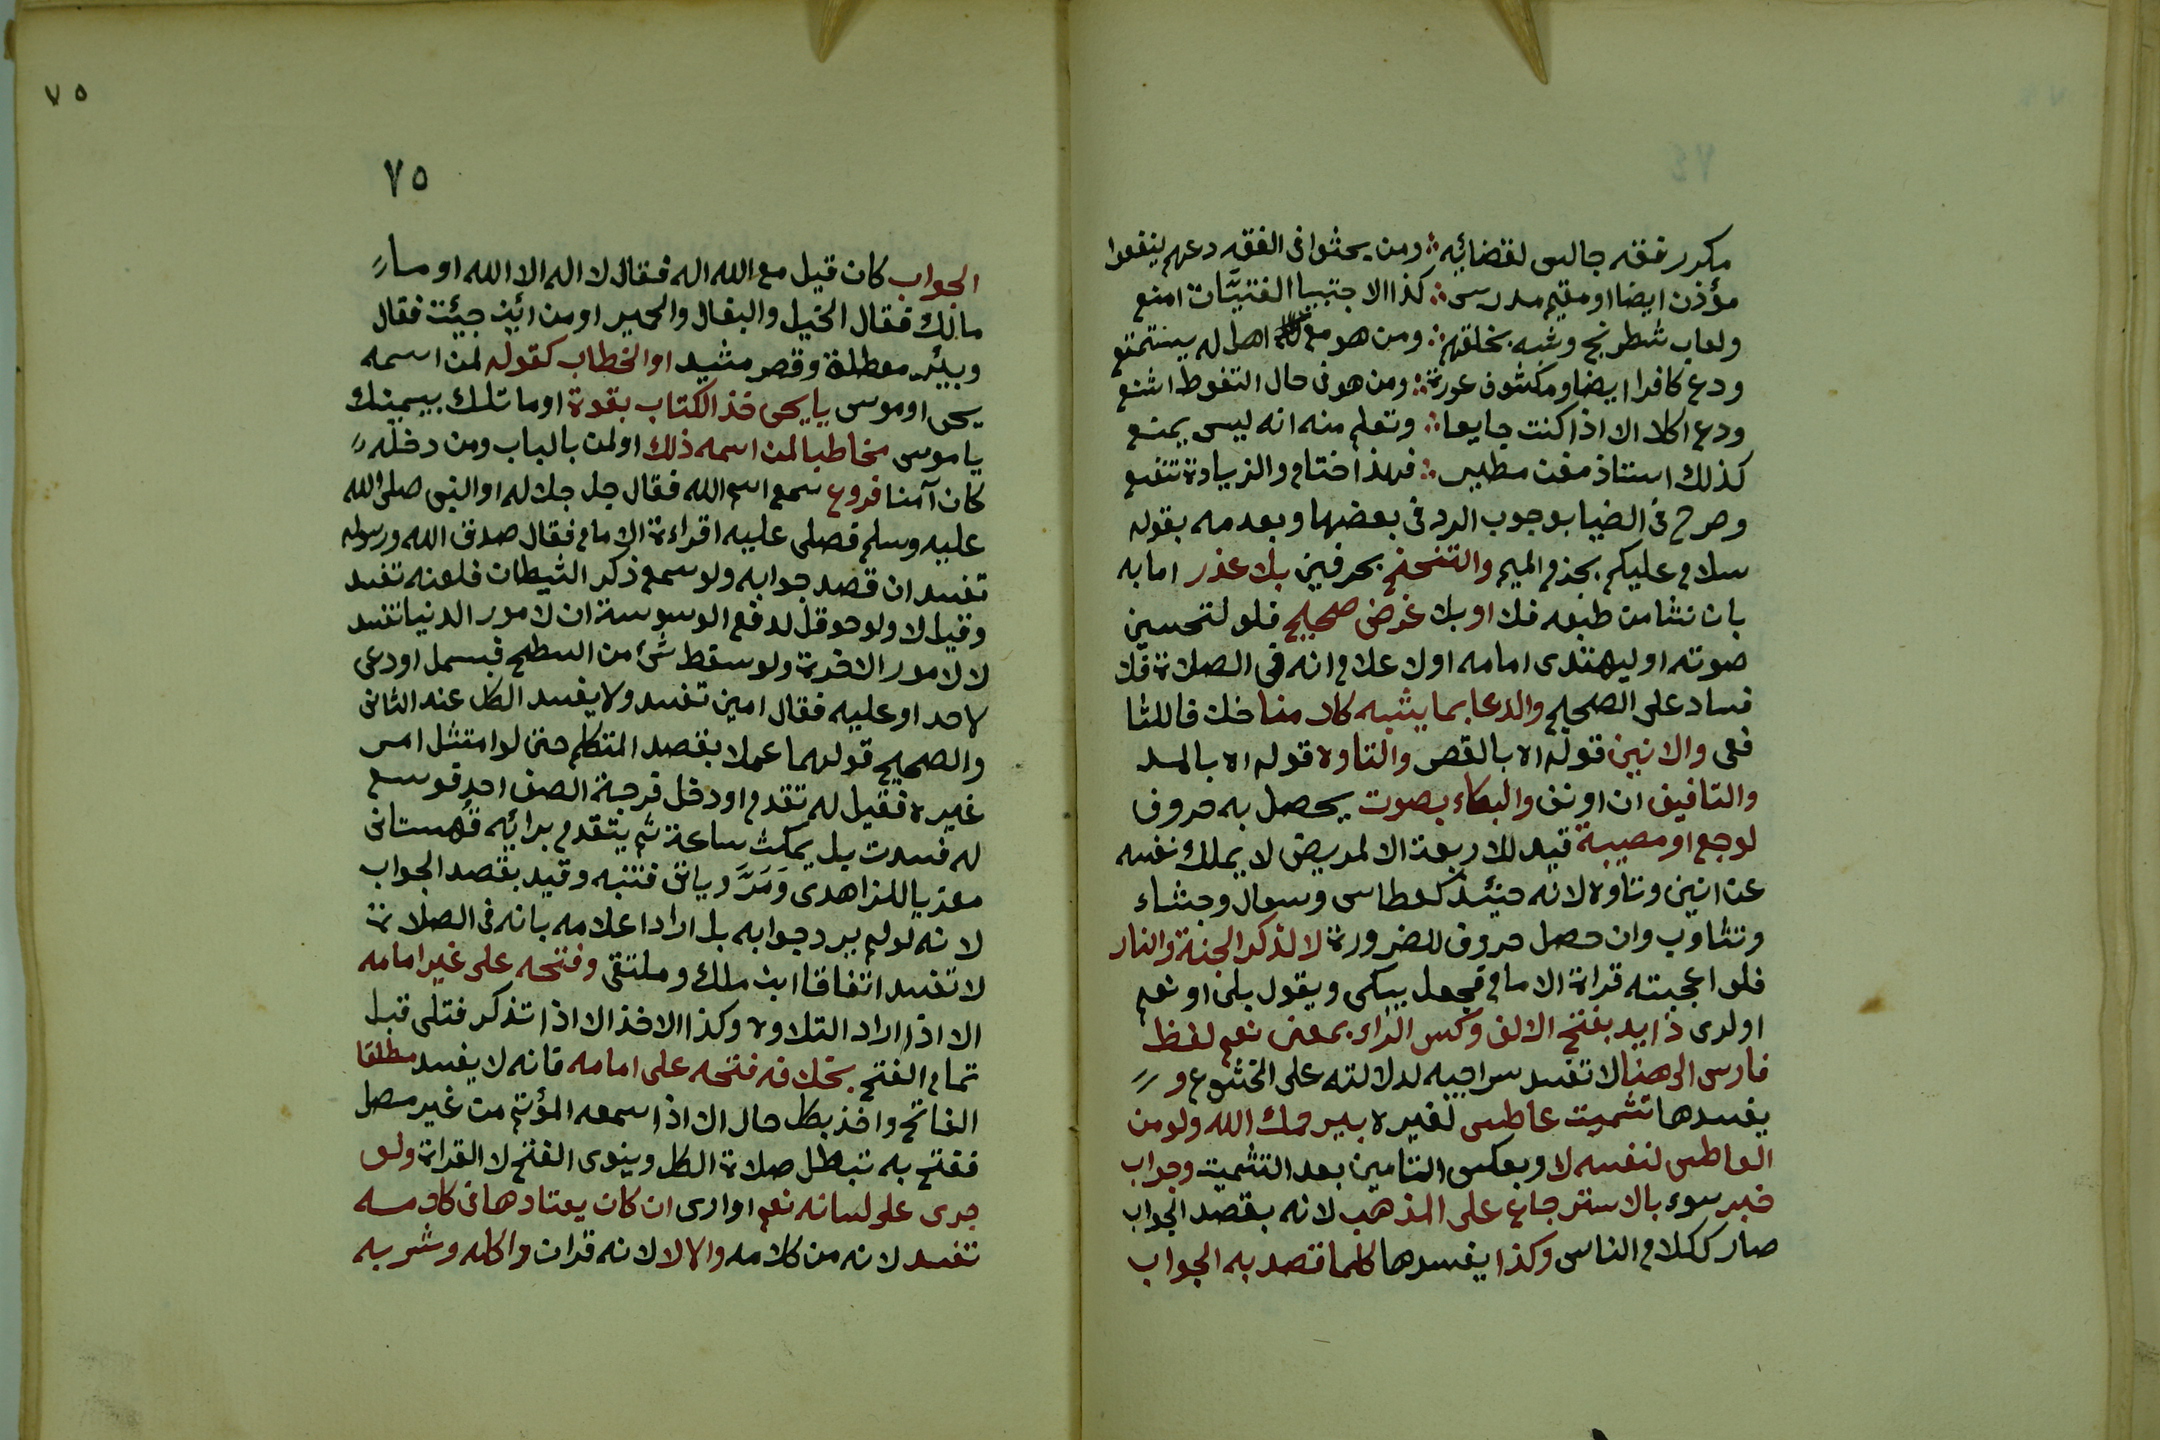 مكرر فقه جالس لقضائه ؞ ومن يحثوا فى الفقه دعهم لينفعوا
مؤذن ايضا او مقيم مدرس ؞ كذا الاجنبيا الفتيَّات امنع
ولعاب شطرنج وشبه بخلقهم ؞ ومن هو مع اهل له يتمتع
ودع كافرا ايضا ومكشوف عورة ؞ ومن هو فى حال التغوط اشنع
ودع اكلا الا اذا كنت جايعا ؞ وتعلم منه انه ليس يمنع
كذلك استاذ مغن مطير ؞ فهذا ختام والزيادة تنفع
وصرح فى الضيا بوجوب الرد فى بعضها وبعدمه بقوله
سلام عليكم بجزم الميم والتنحنح بحرفين بلا عذر اما به
بان نشا من طبعه فلا او بلا غرض صحيح فلو لتحسين
صوته او ليهتدى امامه اولا علام انه فى الصلاة فلا
فساد على الصحيح والدعا بما يشبه كلامنا خلافا للشا
فعى والانين قوله اه بالقصر والتاوه قوله اه بالمد
والتافيف اف او تف والبكاء بصوت يحصل به حروف
لوجع او مصيبة قيد للاربعة الا لمريض لا يملك نفسه
عن انين وتاوه لانه حينئذ كعطاس وسعال وجشاء
وتثاوب وان حصل حروف للضرورة لا لذكر الجنة والنار
فلو اعجبته قراة الامام فجعل يبكى ويقول بلى او نعم
اولرى زايد بفتح الالف وكسر الراء بمعنى نعم لفظ
فارسى الى هنا لا تفسد سراجيه لدلالته على الخشوع و
يفسدها تشميت عاطس لغيره بيرحمك الله ولو من
العاطس لنفسه لا وبعكس التامين بعد التشميت وجواب
خبر سوء بالاسترجاع على المذهب لانه بقصد الجواب
صار ككلام الناس وكذا يفسدها كلما قصد به الجواب
٧٥
٧٥
الجواب كان قيل مع الله اله فقال لا اله الا الله او ما
مالك فقال الخيل والبغال والحمير او من ائين جيئت فقال
وبيئر معطلة وقصر مشيد او الخطاب كقوله لمن اسمه
يحى او موسى يا يحى خذ الكتاب بقوة او ما تلك بيمينك
يا موسى مخاطبا لمن اسمه ذلك او لمن بالباب ومن دخله
كان آمنا فروع سمع اسم الله فقال جل جلاله او النبى صلى الله
عليه وسلم فصلى عليه او قراءة الامام فقال صدق الله ورسوله
تفسد ان قصد جوابه ولو سمع ذكر الشيطان فلعنه تفسد
وقيل لا ولو حوقل لدفع الوسوسة ان لامور الدنيا تفسد
لا لامور الاخرة ولو سقط شئ من السطح فبسمل او دعى
لاحد او عليه فقال امين تفسد ولا يفسد الكل عند الثانى
والصحيح قولهما عملا بقصد المتكلم حتى لو امتثل امر
غيره فقيل له تقدم او دخل فرجة الصف احد فوسع
له فسدت بل يمكث ساعة ثم يتقدم برائه قهستانى
معزيا للزاهدى وَمَرَّ وياتى فتنبه وقيد بقصد الجواب
لانه لو لم يرد جوابه بل اراد اعلامه بانه فى الصلاة
لا تفسد اتفاقا ابن ملك وملتقى وفتحه على غير امامه
الا اذا اراد التلاوه وكذا الاخذ الا اذا تذكر فتلى قبل
تمام الفتح بخلاف فتحه على امامه فانه لا يفسد مطلقا
الفاتح واخذ بكل حال الا اذا سمعه المؤتم من غير مصل
ففتح به تبطل صلاة الكل وينوى الفتح لا القراة ولو
جرى على لسانه نعم او ارى ان كان يعتادها فى كلامه
تفسد لانه من كلامه والا لا لانه قران واكله وشربه